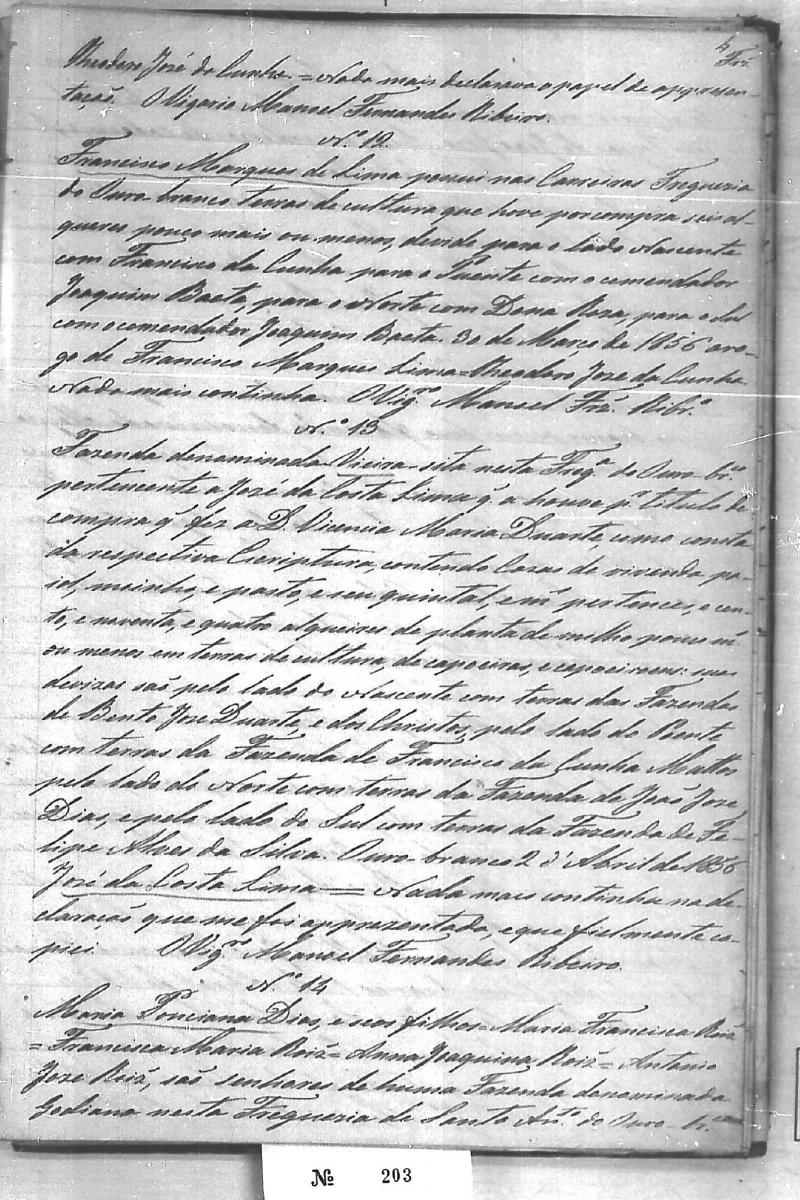 4
Frz.
Theodoro José da Cunha. = Nada mais declarava o papel de appresen-
tação. O Vigario Manoel Fernandes Ribeiro.
N.º 12.
Francisco Marques de Lima possui nas Carreiras Freguezia
do Ouro branco terras de cultura que hove por compra seis al-
queres pouco mais ou menos, devide para o lado Nascente
com Francisco da Cunha para o Puente com o comendador
Joaquim Baeta, para o Norte com Dona Roza, para o Sul
com o comendador Joaquim Baeta. 30 de Março de 1856 a ro-
go de Francisco Marques Lima = Theodoro Joze da Cunha.
Nada mais continha. O Vigr.º Manoel Frz. Ribr.º
N.º 13
Fazenda denominada Vieira sita nesta Freg.ª do Ouro-br.co
pertencente a José da Costa Lima q. a houve p.r titulo de
compra q. fez a D. Vicencia Maria Duarte, como consta
da respectiva Escriptura, contendo Cazas de vivenda, pa-
iol, moinho, e pasto, e seu quintal, e m.s pertences, e cen-
to, e noventa, e quatro alqueires de planta de milho pouco m.s
ou menos em terras de cultura, de capoeiras, e capoeiroens: suas
devizas são pelo lado do Nascente com terras das Fazendas
de Bento Joze Duarte, e dos Christos, pelo lado do Poente
com terras da Fazenda de Francisco da Cunha Mattos
pelo lado do Norte com terras da Fazenda de João Joze
Dias, e pelo lado do Sul com terras da Fazenda de Fe-
lipe Alves da Silva. Ouro-branco 2 d'Abril de 1856
José da Costa Lima = Nada mais continha na de-
claração que me foi apprezentada, e que fielmente co-
piei. O Vigr.º Manoel Fernandes Ribeiro.
N.º 14
Maria Ponciana Dias, e seos filhos = Maria Francisca Roiz
= Francisca Maria Roiz = Anna Joaquina Roiz = Antonio
Joze Roiz, são senhores de huma Fazenda denominada
nesta Freguezia de Santo Ant.º do Ouro-br.co
№ 203